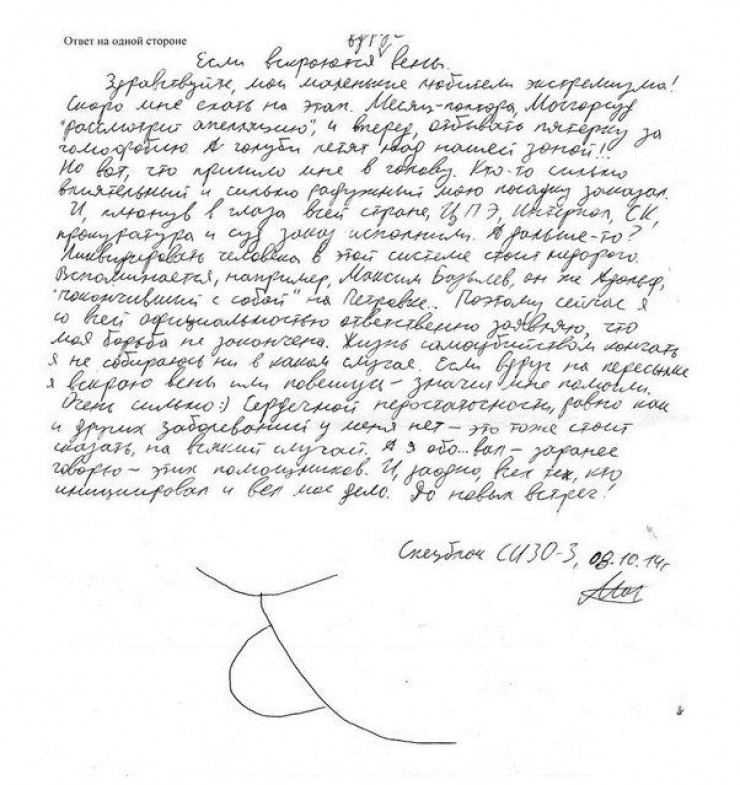 Ответ на одной стороне
вдруг
Если вскроются вены.
Здравствуйте, мои маленькие любители экстремизма!
Скоро мне ехать на этап. Месяц-полтора, Мосгорсуд
"рассмотрит апелляцию", и вперед, отбывать пятерку за
гомофобию. А голуби летят над нашей зоной!..
Но вот, что пришло мне в голову. Кто-то сильно
влиятельный и сильно радужный мою посадку заказал.
И, плюнув в глаза всей стране, ЦПЭ, Интерпол, СК,
прокуратура и суд заказ исполнили. А дальше-то?
Ликвидировать человека в этой системе стоит недорого.
Вспоминается, например, Максим Базылев, он же Адольф,
"покончивший с собой" на Петровке.. Поэтому сейчас я
со всей официальностью ответственно заявляю, что
моя борьба не закончена. Жизнь самоубийством кончать
я не собираюсь ни в каком случае. Если вдруг на пересылке
я вскрою вены или повешусь - значит мне помогли.
Очень сильно :) Сердечной недостаточности, равно как
и других заболеваний у меня нет - это тоже стоит
сказать, на всякий случай. А я обо...вал - заранее
говорю - этих помощников. И, заодно, всех тех, кто
инициировал и вел мое дело. До новых встреч!
Спецблок СИЗО-3, 08.10.14г